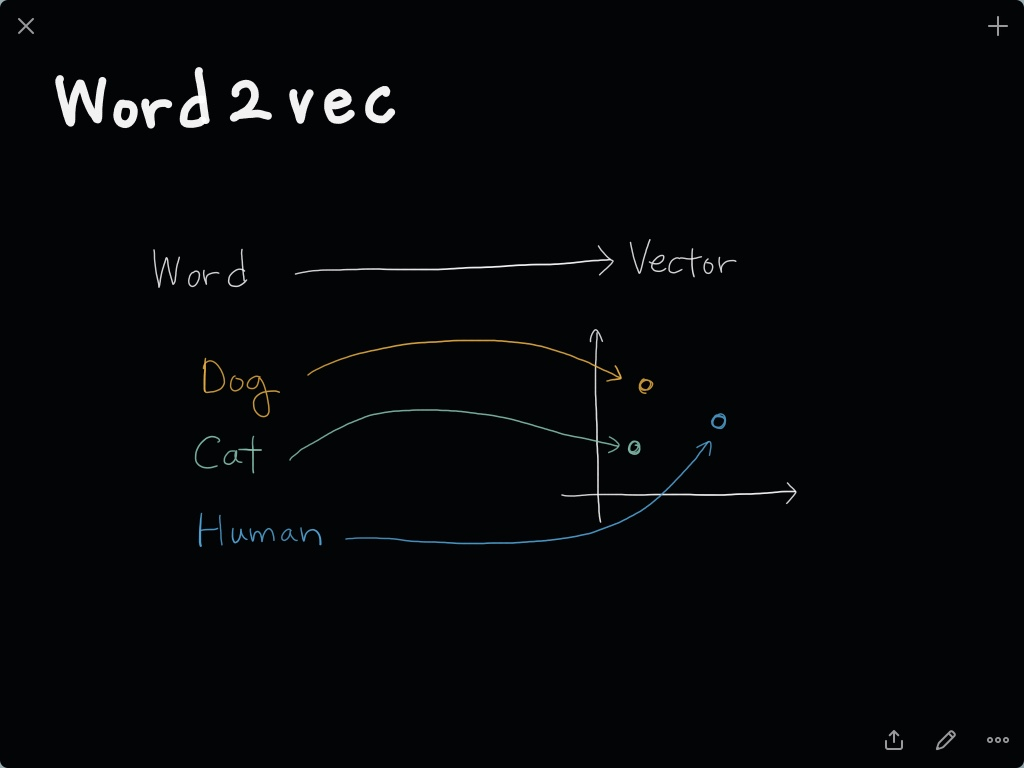 Word 2 vec
Word Vector
Dog
Cat
Human